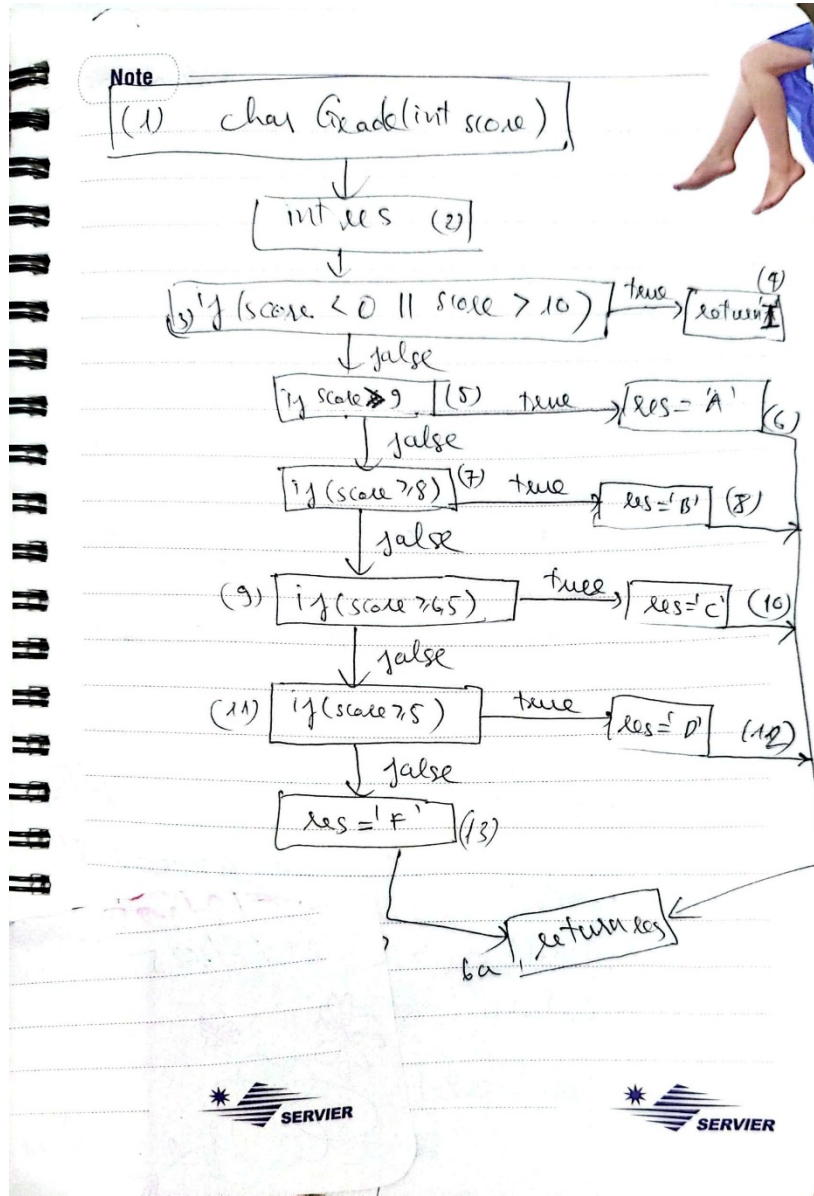 Note
(1) char Grade(int score)
int res (2)
(3) if (score < 0 || score > 10) true (4) return 'I'
false
if score ≥ 9 (5) true res = 'A' (6)
false
if (score ≥ 8) (7) true res = 'B' (8)
false
(9) if (score ≥ 6,5) true res = 'C' (10)
false
(11) if (score ≥ 5) true res = 'D' (12)
false
res = 'F' (13)
return res
SERVIER SERVIER